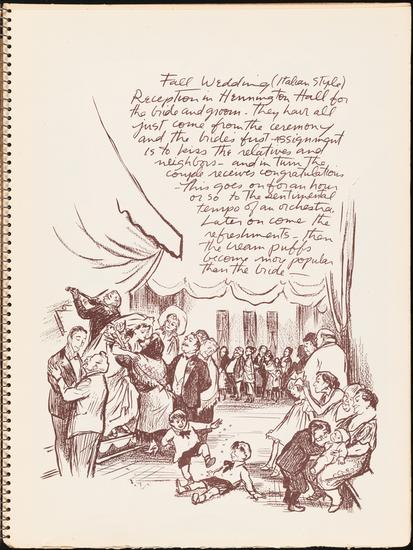 Fall Wedding (Italian Style)
Reception in Hennington Hall for
the bride and groom - they have all
just come from the ceremony
and the brides first assignment
is to kiss the relatives and
neighbors - and in turn the
couple receives congratulations
- This goes on for an hour
or so to the sentimental
tempo of an orchestra.
Later on come the
refreshments - then
the cream puffs
become more popular
than the bride -